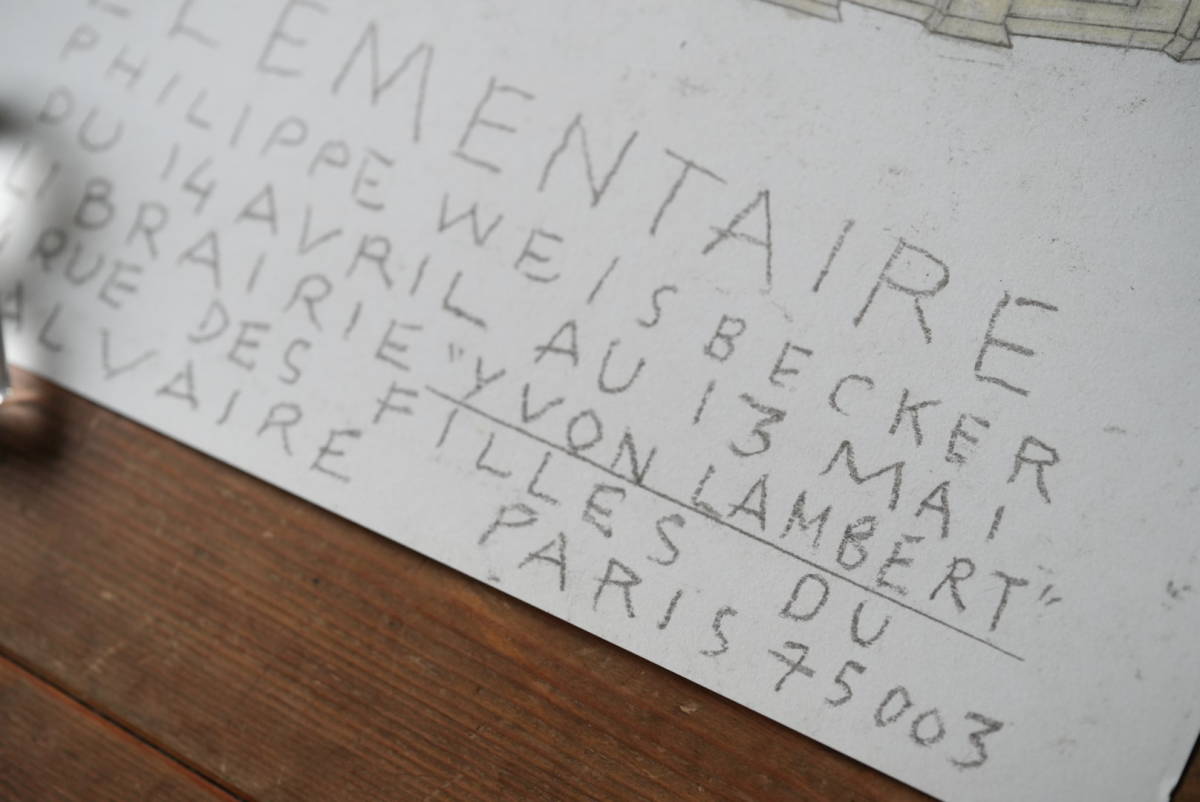 ELEMENTAIRE
PHILIPPE WEISBECKER
DU 14 AVRIL AU 13 MAI
LIBRAIRIE "YVON LAMBERT"
RUE DES FILLES DU
CALVAIRE PARIS 75003